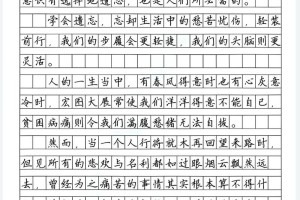 意识有选择地遗忘，也是人们所必需的。
学会遗忘，忘却生活中的愁苦忧伤，轻装
前行，我们的步履会更轻捷，我们的头脑则更
灵活。
人的一生当中，有春风得意时也有心灰意
冷时，宏图大展常使我们洋洋得意不能自己，
贫困病痛则令我们满腹愁绪无法自拔。
然而，当一个人行将就木再回望来路时，
但见所有的悲欢与名利都如过眼烟云飘然远
去，曾经为之痛苦的事情其实根本算不得什